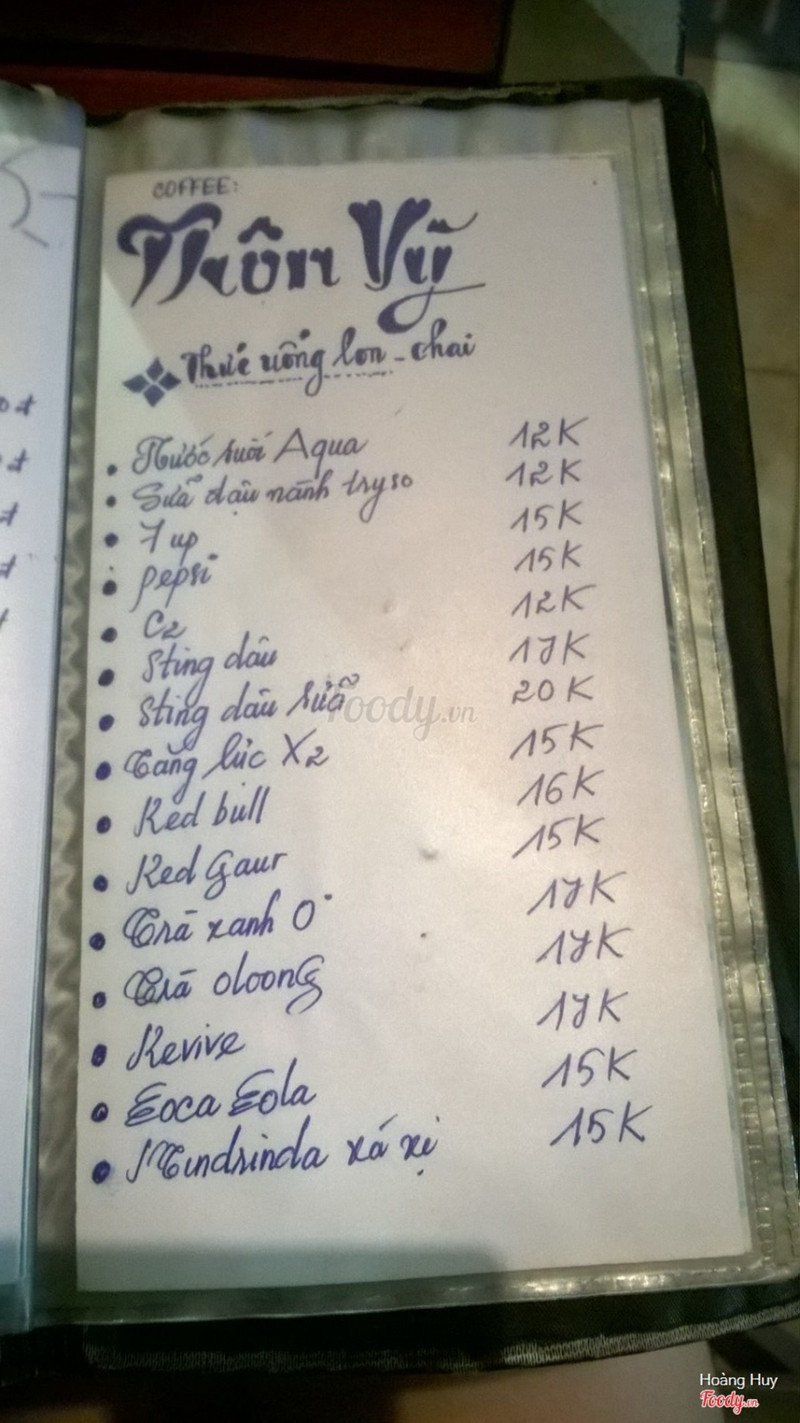 COFFEE:
Thôn Vỹ
Thức uống lon - chai
• Nước suối Aqua 12K
• Sữa đậu nành tryso 12K
• 7 up 15K
• pepsi 15K
• C2 12K
• Sting dâu 17K
• Sting dâu sữa 20K
• Tăng lực X2 15K
• Red bull 16K
• Red Gaur 15K
• Trà xanh O° 17K
• Trà oloong 17K
• Revive 17K
• Coca Cola 15K
• Mundrinda xá xị 15K
foody.vn
Hoàng Huy
Foody.vn